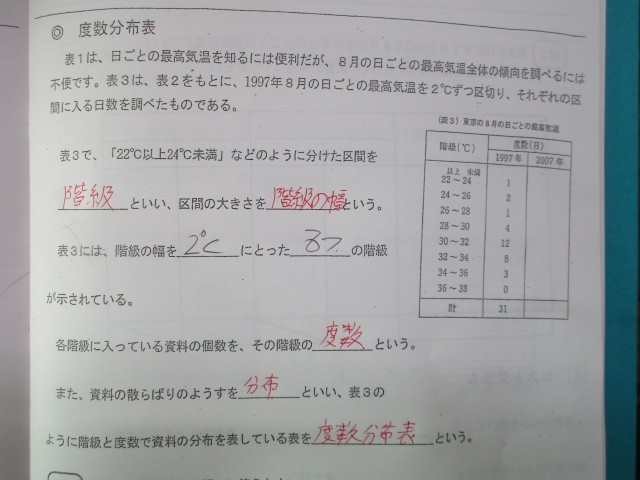 ◎ 度数分布表
表１は、日ごとの最高気温を知るには便利だが、８月の日ごとの最高気温全体の傾向を調べるには
不便です。表３は、表２をもとに、1997年８月の日ごとの最高気温を２℃ずつ区切り、それぞれの区
間に入る日数を調べたものである。
(表３) 東京の８月の日ごとの最高気温
階級(℃) 度数(日)
1997年 2007年
以上 未満
22～24 1
24～26 2
26～28 1
28～30 4
30～32 12
32～34 8
34～36 3
36～38 0
計 31
表３で、「22℃以上24℃未満」などのように分けた区間を
階級といい、区間の大きさを階級の幅という。
表３には、階級の幅を2℃にとった8つの階級
が示されている。
各階級に入っている資料の個数を、その階級の度数という。
また、資料の散らばりのようすを分布といい、表３の
ように階級と度数で資料の分布を表している表を度数分布表という。